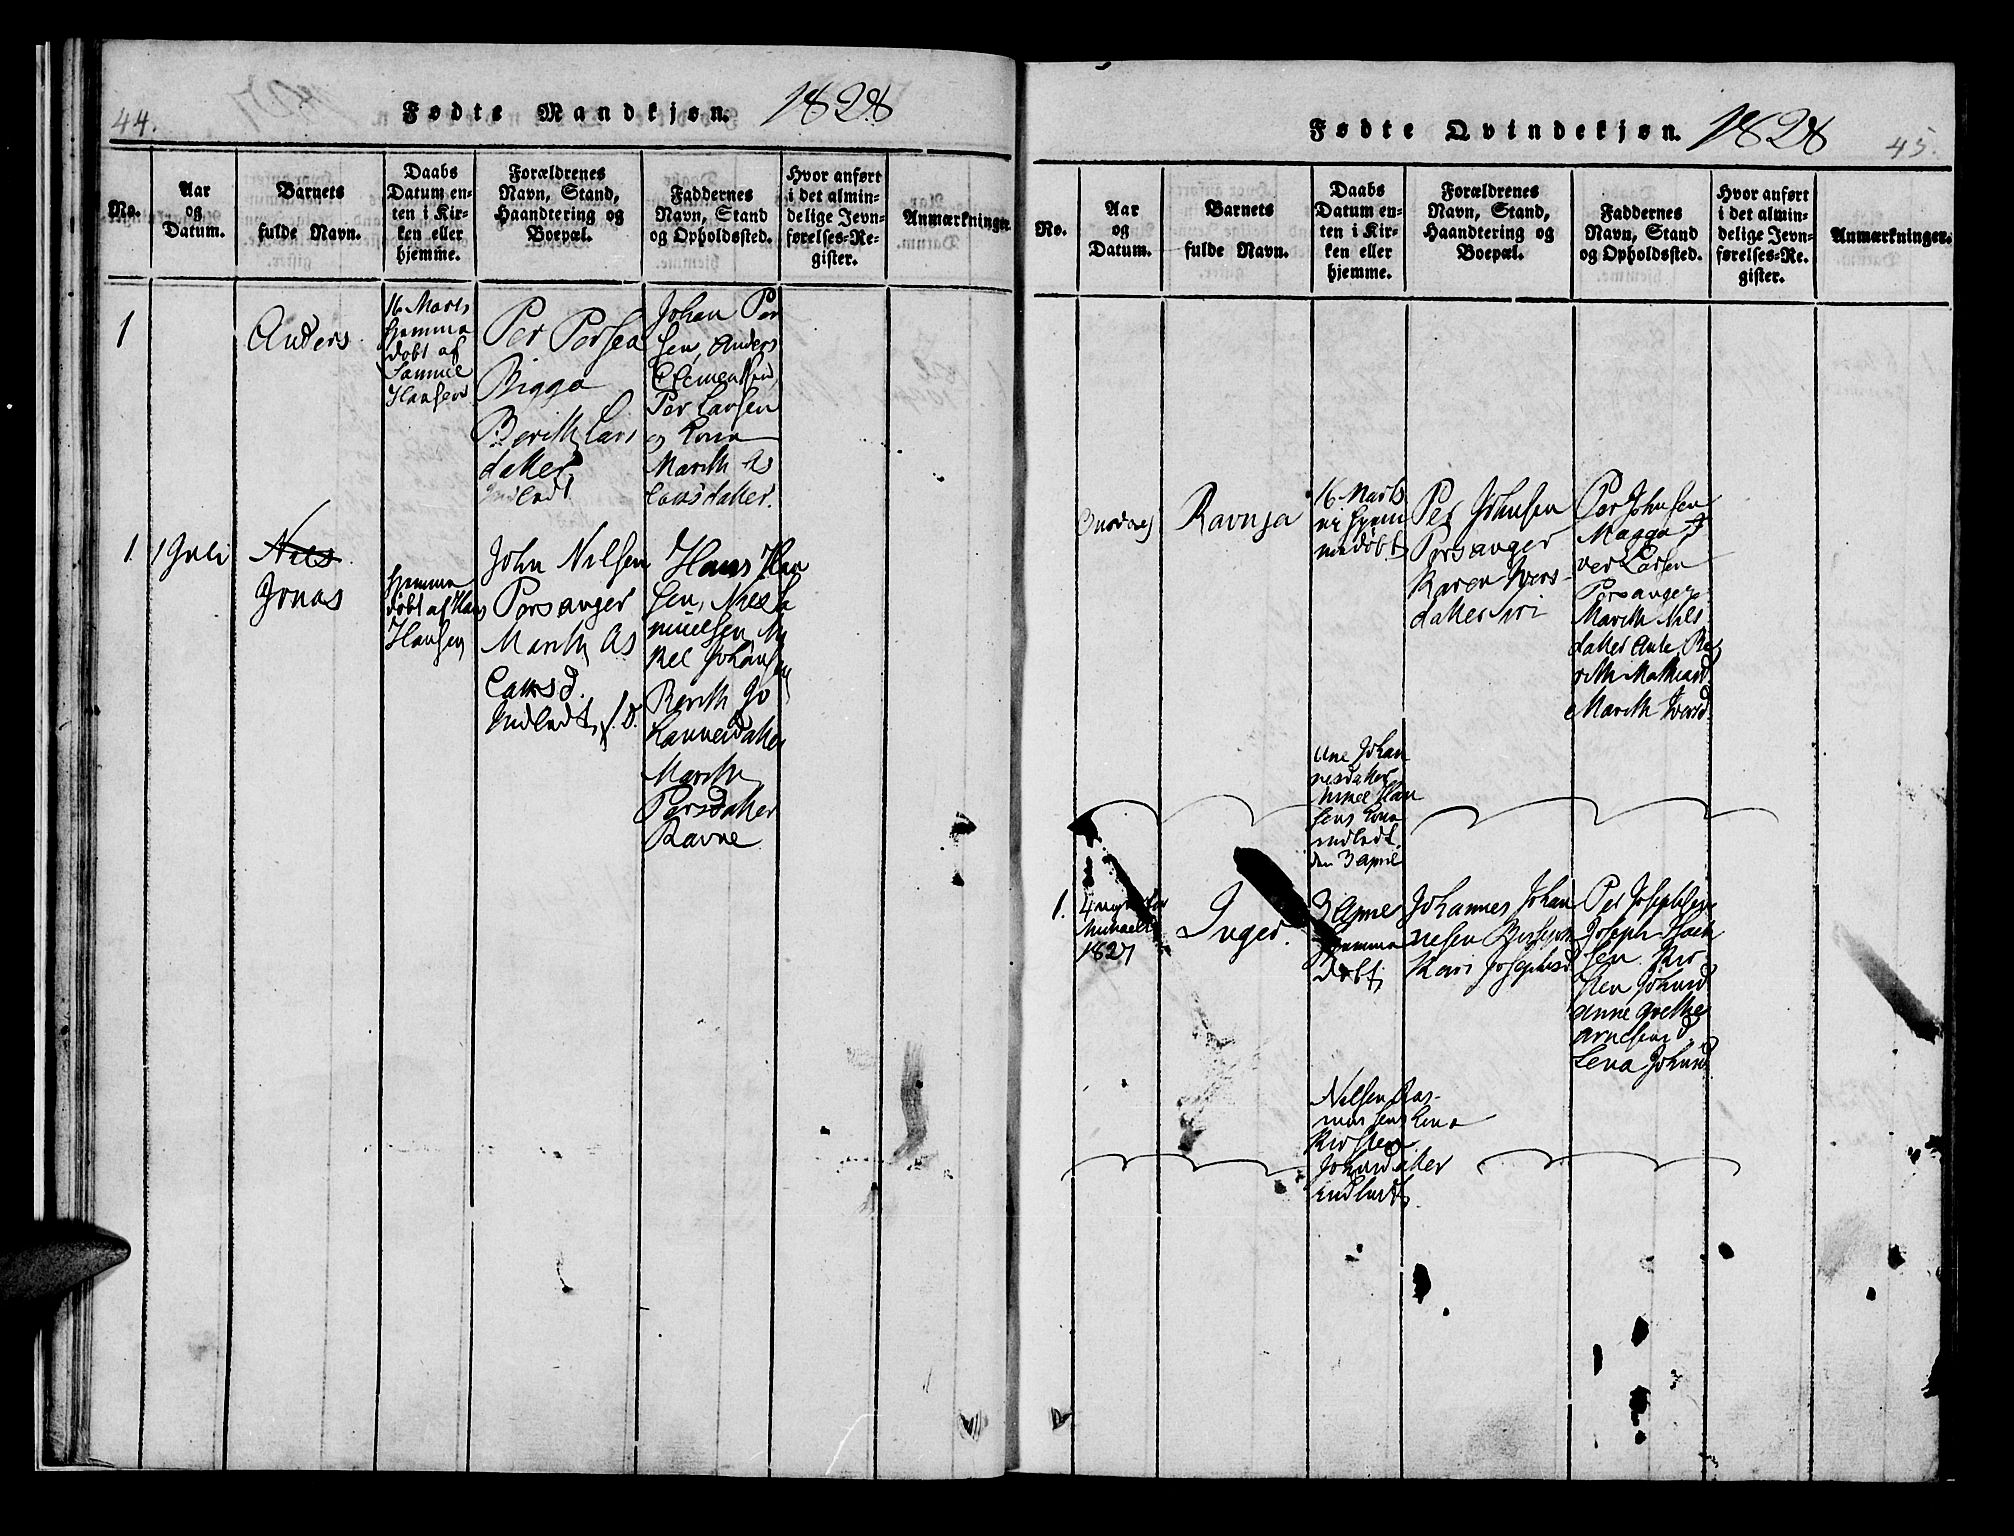 44.
Fødte Mandkjøn. 1828
No.
Aar
og
Datum.
Barnets
fulde Navn.
Daabs
Datum en-
ten i Kir-
ken eller
hjemme.
Forældrenes
Navn, Stand,
Haandtering og
Boepæl.
Faddernes
Navn, Stand
og Opholdssted.
Hvor anført
i det almin-
delige Jevn-
førelses-Re-
gister.
Anmærkninger.
1
Anders
16 Marts
hjemme
døbt af
Samuel
Hansen
Per Persen
Bigga
Berith Lars
datter
Indledt
Johan Per
sen, Anders
Clementsen,
Per Larsen
og Kona
Marith As
laksdatter.
1
1 Juli
Nils
Jonas
hjemme
døbt af Hans
Hansen
John Nilsen
Porsanger
Marith As
laksd.
Indledt
Hans Han
sen, Niels Sa
muelsen Mi
kel Johansen
Berith Jo
hannesdatter
Marith
Persdatter
Ravne
Fødte Qvindekjøn. 1828
45.
No.
Aar
og
Datum.
Barnets
fulde Navn.
Daabs
Datum en-
ten i Kir-
ken eller
hjemme.
Forældrenes
Navn, Stand,
Haandtering og
Boepæl.
Faddernes
Navn, Stand
og Opholdssted.
Hvor anført
i det almin-
delige Jevn-
førelses-Re-
gister.
Anmærkninger.
Ravnja
16 Marts
hjem
medøbt
Per Johnsen
Porsanger
Karen Ivers-
datter Siri
Per Johnsen
Magga I
ver Larsen
Porsanger
Marith Nils
datter Be
rith Mathiasd
Marith Iversd.
Ane Johan
nesdatter
Mikel Han
sens Kona
indledt.
den 3 April
1.
1827
Inger.
3 April
hjemme
døbt
Johannes Johan
nesen
Kari Josephsd
Per Josephsen
Joseph
sen Kir
sten Johnsd
Anne Grethe
Arnesensd
Lena Johnsd
Nilsen Ras-
mussens Kona
Kirsten
Johnsdatter
indledt